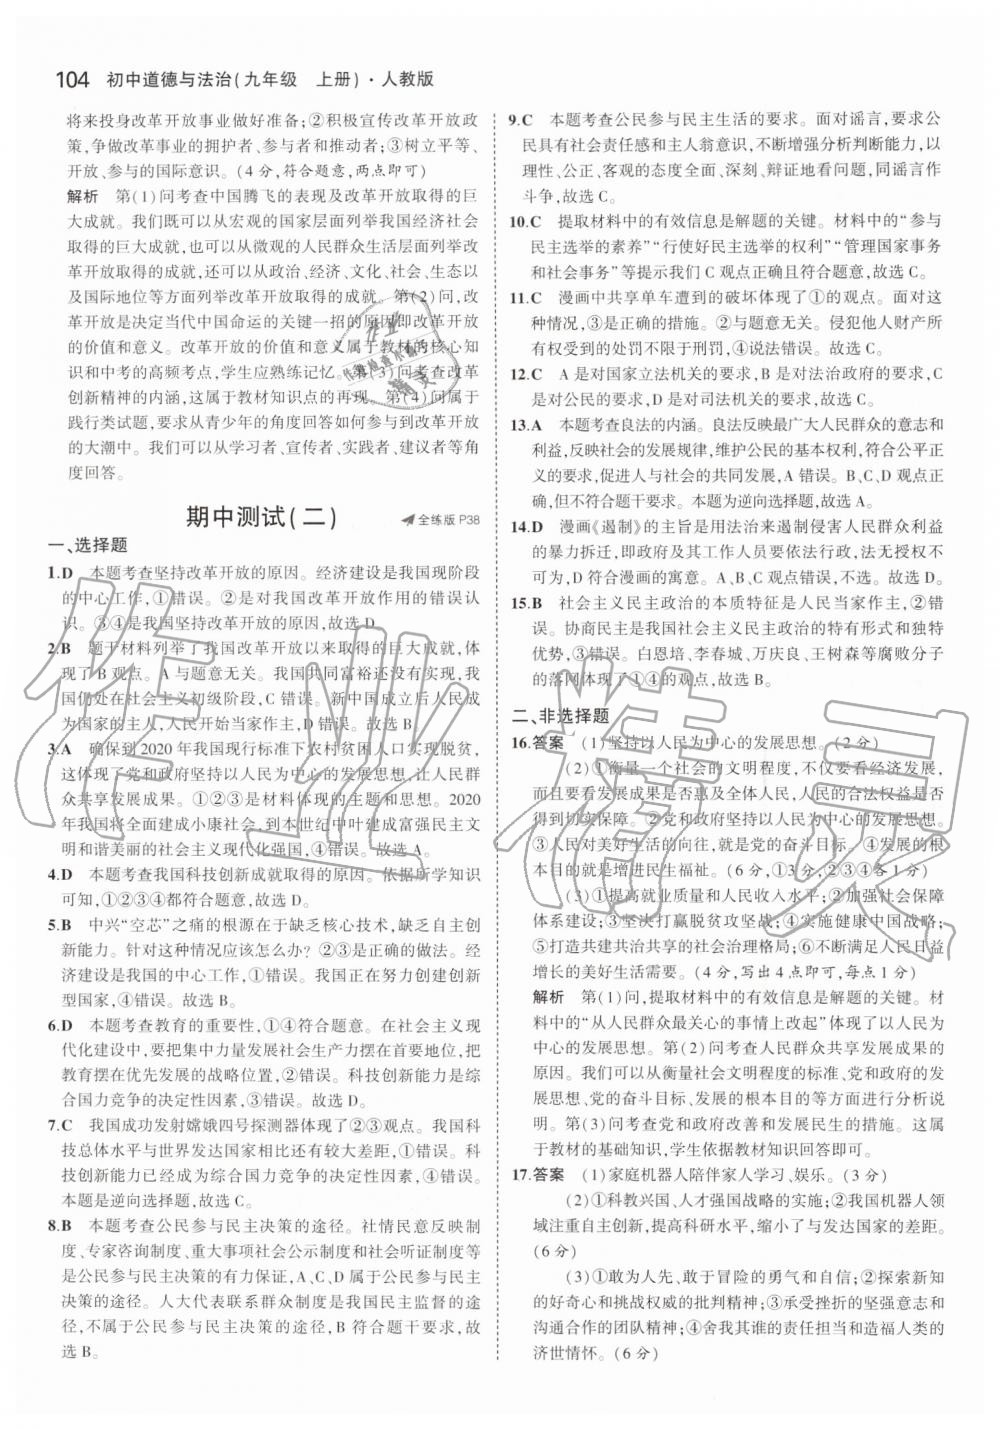 104 初中道德与法治(九年级 上册)·人教版
将来投身改革开放事业做好准备;②积极宣传改革开放政
策,争做改革事业的拥护者、参与者和推动者;③树立平等、
开放、参与的国际意识。(4分,符合题意,两点即可)
解析 第(1)问考查中国腾飞的表现及改革开放取得的巨
大成就。我们既可以从宏观的国家层面列举我国经济社会
取得的巨大成就,也可以从微观的人民群众生活层面列举改
革开放取得的成就,还可以从政治、经济、文化、社会、生态以
及国际地位等方面列举改革开放取得的成就。第(2)问,改
革开放是决定当代中国命运的关键一招的原因即改革开放
的价值和意义。改革开放的价值和意义属于教材的核心知
识和中考的高频考点,学生应熟练记忆。第(3)问考查改革
创新精神的内容,这属于教材知识点的再现。第(4)问属于
践行类试题,要求从青少年的角度回答如何参与到改革开放
的大潮中。我们可以从学习者、宣传者、实践者、建议者等角
度回答。
期中测试(二) 全练版 P38
一、选择题
1.D 本题考查坚持改革开放的原因。经济建设是我国现阶段
的中心工作,①错误。②是对我国改革开放作用的错误认
识。③④是我国坚持改革开放的原因,故选D。
2.B 题干材料列举了我国改革开放以来取得的巨大成就,体
现了B观点。A错误。我国共同富裕还没有实现,错误。我
国仍处在社会主义初级阶段,C错误。新中国成立后人民成
为国家的主人,人民开始当家作主,D错误。故选B。
3.A 确保到2020年我国现行标准下农村贫困人口实现脱贫,
这体现了党和政府坚持以人民为中心的发展思想,让人民群
众共享发展成果。①②③是材料体现的主题和思想。2020
年我国将全面建成小康社会,到本世纪中叶建成富强民主文
明和谐美丽的社会主义现代化强国,④错误。故选A。
4.D 本题考查我国科技创新成就取得的原因。依据所学知识
可知,①②③④都符合题意,故选D。
5.B 中兴“空芯”之痛的根源在于缺乏核心技术,缺乏自主创
新能力。针对这种情况应该怎么办?②③是正确的做法。经
济建设是我国的中心工作,①错误。我国正在努力创建创新
型国家,④错误。故选B。
6.D 本题考查教育的重要性,①④符合题意。在社会主义现
代化建设中,要把集中力量发展社会生产力摆在首要地位,把
教育摆在优先发展的战略位置,②错误。科技创新能力是综
合国力竞争的决定性因素,③错误。故选D。
7.C 我国成功发射嫦娥四号探测器体现了②③观点。我国科
技总体水平与世界发达国家相比还有较大差距,①错误。科
技创新能力已经成为综合国力竞争的决定性因素,④错误。
本题是逆向选择题,故选C。
8.B 本题考查公民参与民主决策的途径。社情民意反映制
度、专家咨询制度、重大事项社会公示制度和社会听证制度等
是公民参与民主决策的有力保证,A、C、D属于公民参与民主
决策的途径。人大代表联系群众制度是我国民主监督的途
径,不属于公民参与民主决策的途径,B符合题干要求,故
选B。
9.C 本题考查公民参与民主生活的要求。面对谣言,要求公
民具有社会责任感和主人翁意识,不断增强分析判断能力,以
理性、公正、客观的态度全面、深刻、辩证地看问题,同谣言作
斗争,故选C。
10.C 提取材料中的有效信息是解题的关键。材料中的“参与
民主选举的素养”“行使好民主选举的权利”“管理国家事务
和社会事务”等提示我们C观点正确且符合题意,故选C。
11.C 漫画中共享单车遭到的破坏体现了①的观点。面对这
种情况,③是正确的措施。②与题意无关。侵犯他人财产所
有权受到的处罚不限于刑罚,④说法错误。故选C。
12.C A是对国家立法机关的要求,B是对法治政府的要求,C
是对公民的要求,D是对司法机关的要求,故选C。
13.A 本题考查良法的内涵。良法反映最广大人民群众的意志和
利益,反映社会的发展规律,维护公民的基本权利,符合公平正
义的要求,促进人与社会的共同发展,A错误。B、C、D观点正
确,但不符合题干要求。本题为逆向选择题,故选A。
14.D 漫画《遏制》的主旨是用法治来遏制侵害人民群众利益
的暴力拆迁,即政府及其工作人员要依法行政,法无授权不可
为,D符合漫画的寓意。A、B、C观点错误,不选。故选D。
15.B 社会主义民主政治的本质特征是人民当家作主,②错
误。协商民主是我国社会主义民主政治的特有形式和独特
优势,③错误。白恩培、李春城、万庆良、王树森等腐败分子
的落网体现了①④的观点,故选B。
二、非选择题
16.答案 (1)坚持以人民为中心的发展思想。(2分)
(2)①衡量一个社会的文明程度,不仅要看经济发展,
而且要看发展成果是否惠及全体人民,人民的合法权益是否
得到切实保障。②党和政府坚持以人民为中心的发展思想。
③人民对美好生活的向往,就是党的奋斗目标。④发展的根
本目的就是增进民生福祉。(6分,①②3分,③④各1分)
(3)①提高就业质量和人民收入水平;②加强社会保障
体系建设;③坚决打赢脱贫攻坚战;④实施健康中国战略;
⑤打造共建共治共享的社会治理格局;⑥不断满足人民日益
增长的美好生活需要。(4分,写出4点即可,每点1分)
解析 第(1)问,提取材料中的有效信息是解题的关键。材
料中的“从人民群众最关心的事情上改起”体现了以人民为
中心的发展思想。第(2)问考查人民群众共享发展成果的
原因。我们可以从衡量社会文明程度的标准、党和政府的发
展思想、党的奋斗目标、发展的根本目的等方面进行分析。
第(3)问考查党和政府改善和发展民生的措施。这属
于教材的基础知识,学生依据教材知识回答即可。
17.答案 (1)家庭机器人陪伴家人学习、娱乐。(3分)
(2)①科教兴国、人才强国战略的实施;②我国机器人领
域注重自主创新,提高科研水平,缩小了与发达国家的差距。
(6分)
(3)①敢为人先、敢于冒险的勇气和自信;②探索新知
的好奇心和挑战权威的批判精神;③承受挫折的坚强意志和
沟通合作的团队精神;④舍我其谁的责任担当和造福人类的
济世情怀。(6分)
作业精灵